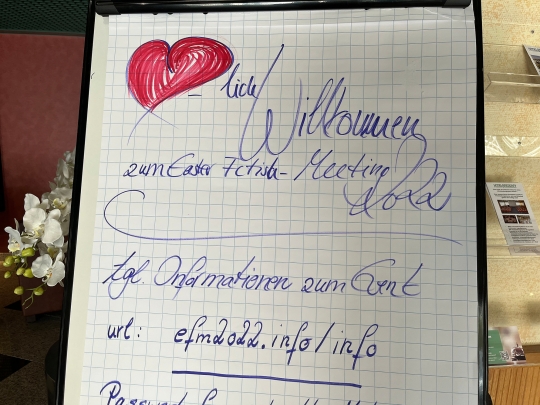 -lich Willkommen
zum Easter Fetish-Meeting
2022
tgl. Informationen zum Event
url: efm2022.info/info